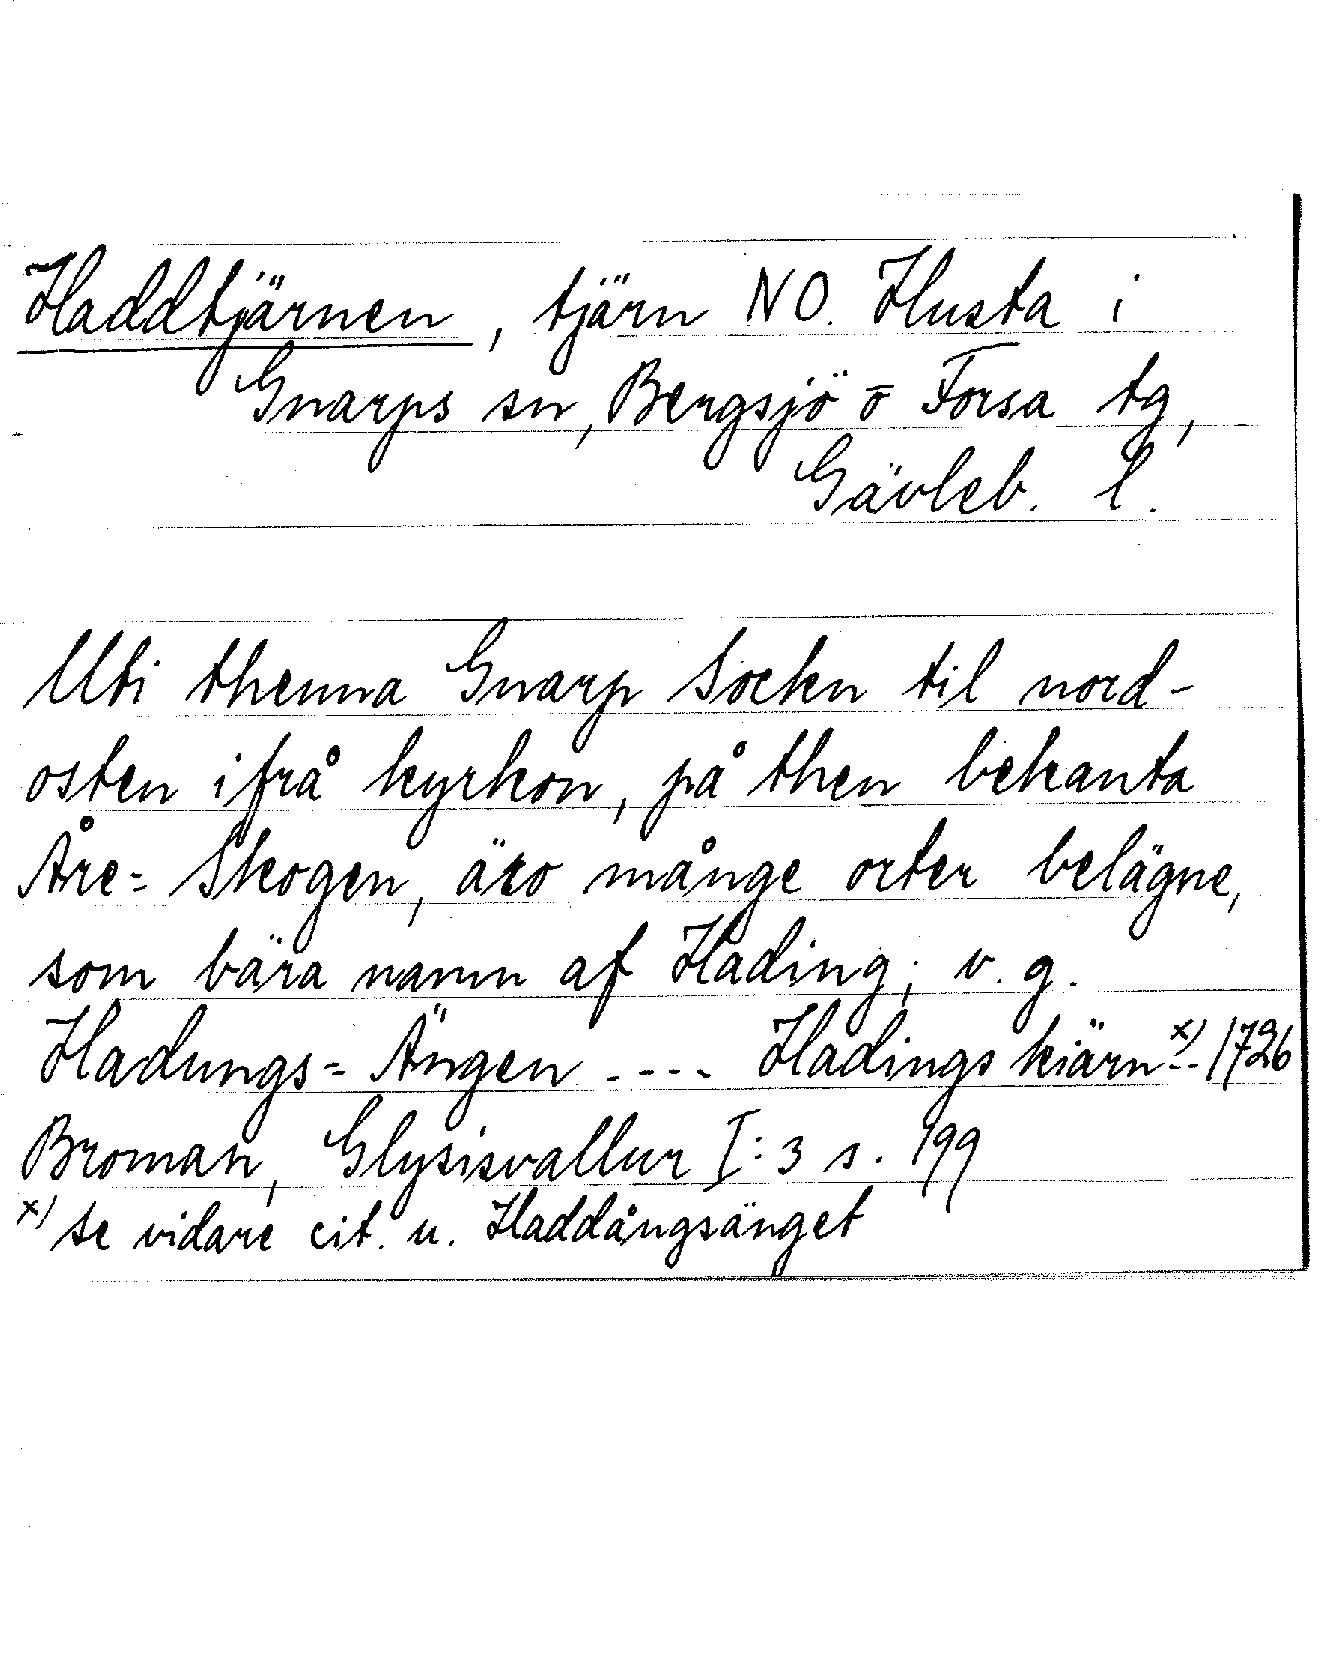 Haddtjärnen, tjärn NO. Husta i
Gnarps sn, Bergsjö o Forsa tg,
Gävleb. l.
Uti thenna Gnarp Sockn til nord-
osten ifrå kyrkon, på then bekanta
Åre= Skogen, äro månge orter belägne,
som bära namn af Hading; v. g.
Hadungs= Ängen ---- Hadings kiärn x) -- 1726
Broman, Glysisvallur I:3 s. 199
x) se vidare cit. u. Haddångsänget